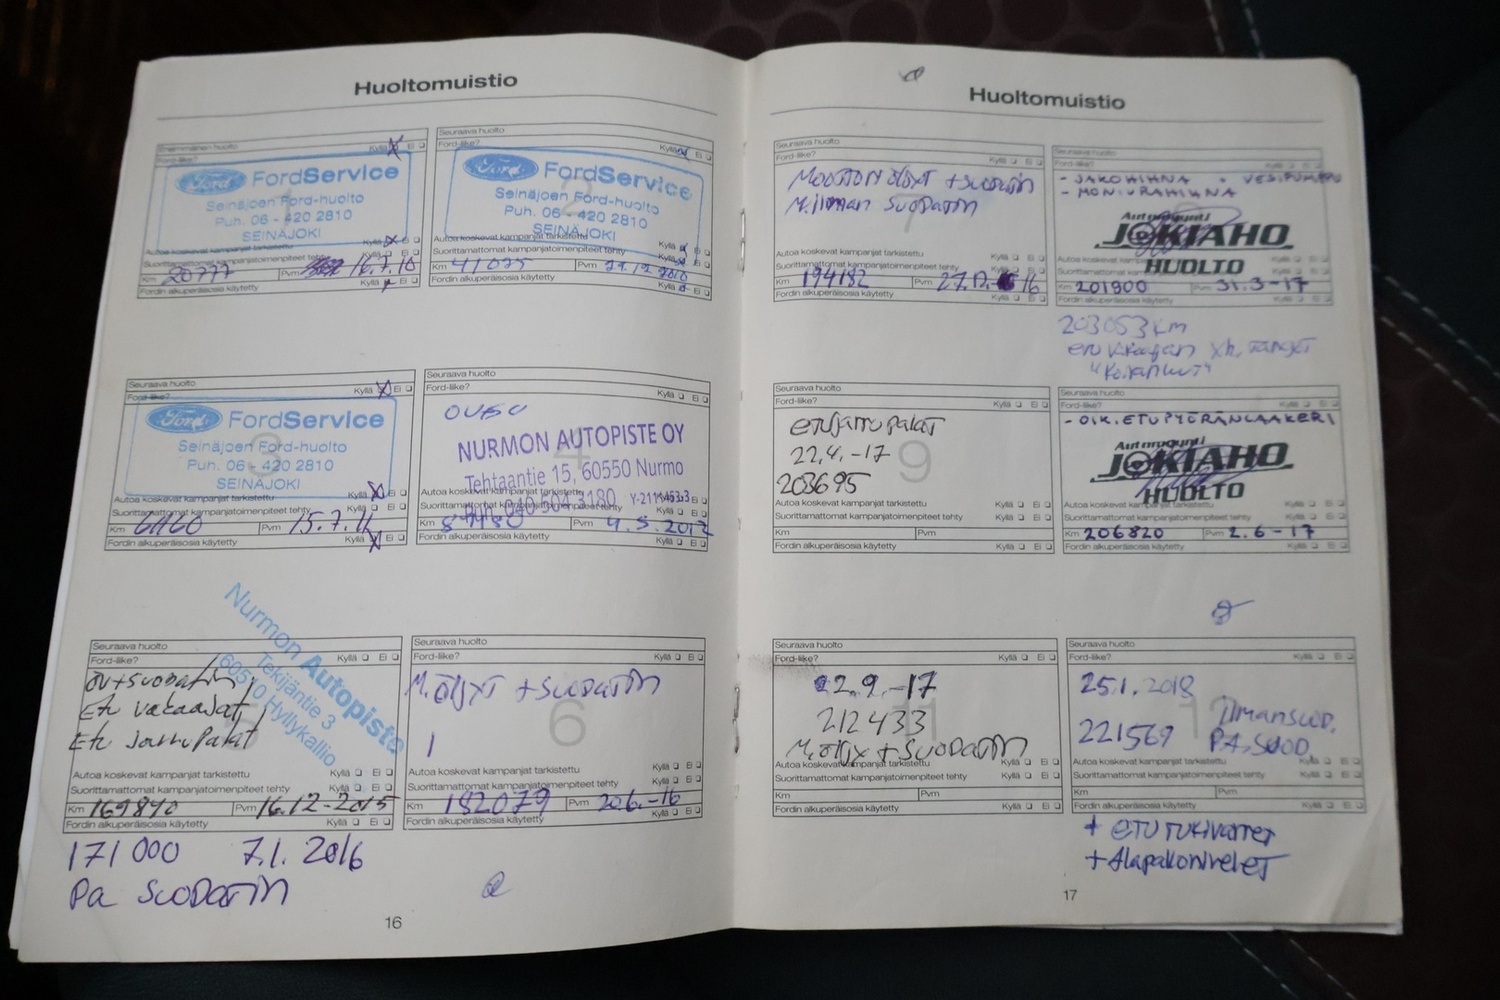 Huoltomuistio
Ensimmäinen huolto
Ford-liike? Kyllä Ei
Ford FordService
Seinäjoen Ford-huolto
Puh. 06 - 420 2810
SEINÄJOKI
Autoa koskevat kampanjat tarkistettu Kyllä Ei
Suorittamattomat kampanjatoimenpiteet tehty
Km 20777 Pvm
Fordin alkuperäisosia käytetty Kyllä
Seuraava huolto
Ford-liike? Kyllä Ei
Ford FordService
Seinäjoen Ford-huolto
Puh. 06 - 420 2810
SEINÄJOKI
Autoa koskevat kampanjat tarkistettu Kyllä
Suorittamattomat kampanjatoimenpiteet tehty
Km 41075 Pvm
Fordin alkuperäisosia käytetty Kyllä Ei
Seuraava huolto
Ford-liike? Kyllä Ei
Ford FordService
Seinäjoen Ford-huolto
Puh. 06 - 420 2810
SEINÄJOKI
3
Autoa koskevat kampanjat tarkistettu Kyllä Ei
Suorittamattomat kampanjatoimenpiteet tehty
Km Pvm 15.7.11
Fordin alkuperäisosia käytetty Kyllä Ei
Seuraava huolto
Ford-liike? Kyllä Ei
NURMON AUTOPISTE OY
Tehtaantie 15, 60550 Nurmo
4
Autoa koskevat kampanjat tarkistettu
Puh. 040 504 3180
Suorittamattomat kampanjatoimenpiteet tehty Kyllä Ei
Km Pvm 4.5.2012
Fordin alkuperäisosia käytetty Kyllä Ei
Nurmon Autopiste
Tekijäntie 3
60510 Hyllykallio
Seuraava huolto
Ford-liike? Kyllä Ei
öv+suodatin
Etu vakaajat
Etu jarrupalat
5
Autoa koskevat kampanjat tarkistettu Kyllä Ei
Suorittamattomat kampanjatoimenpiteet tehty Kyllä Ei
Km 169840 Pvm 16.12-2015
Fordin alkuperäisosia käytetty Kyllä Ei
171 000 7.1. 2016
Pa suodatin
Seuraava huolto
Ford-liike? Kyllä Ei
M.öljyt + suodatin
6
Autoa koskevat kampanjat tarkistettu Kyllä Ei
Suorittamattomat kampanjatoimenpiteet tehty Kyllä Ei
Km 182079 Pvm 20.6.-16
Fordin alkuperäisosia käytetty Kyllä Ei
16
Huoltomuistio
Seuraava huolto
Ford-liike? Kyllä Ei
Moottoriöljyt + suodatin
M.ilman suodatin
7
Autoa koskevat kampanjat tarkistettu Kyllä Ei
Suorittamattomat kampanjatoimenpiteet tehty Kyllä Ei
Km 194182 Pvm
Fordin alkuperäisosia käytetty Kyllä Ei
Seuraava huolto
Ford-liike?
- JAKOHIHNA + VESIPUMPPU
- MONIURAHIHNA
Autonrengi
JOKIAHO
HUOLTO
Km 201900 Pvm 31.3-17
Fordin alkuperäisosia käytetty Kyllä Ei
203053 km
etu vakaajan
Seuraava huolto
Ford-liike? Kyllä Ei
etujarrupalat
22.4.-17
203695
9
Autoa koskevat kampanjat tarkistettu Kyllä Ei
Suorittamattomat kampanjatoimenpiteet tehty Kyllä Ei
Km Pvm
Fordin alkuperäisosia käytetty Kyllä Ei
Seuraava huolto
Ford-liike? Kyllä Ei
- OIK. ETUPYÖRÄNLAAKERI
JOKIAHO
HUOLTO
Autoa koskevat kampanjat tarkistettu Kyllä Ei
Suorittamattomat kampanjatoimenpiteet tehty Kyllä Ei
Km 206820 Pvm 2.6-17
Fordin alkuperäisosia käytetty Kyllä Ei
Seuraava huolto
Ford-liike? Kyllä Ei
22.9.-17
212433
M.öljyt + suodatin
11
Autoa koskevat kampanjat tarkistettu Kyllä Ei
Suorittamattomat kampanjatoimenpiteet tehty Kyllä Ei
Km Pvm
Fordin alkuperäisosia käytetty Kyllä Ei
Seuraava huolto
Ford-liike? Kyllä Ei
25.1.2018
221569 Ilmansuod.
PA.SUOD.
12
Autoa koskevat kampanjat tarkistettu Kyllä Ei
Suorittamattomat kampanjatoimenpiteet tehty Kyllä Ei
Km Pvm
Fordin alkuperäisosia käytetty Kyllä Ei
+ etu tukivarret
+ Alapallonivelet
17